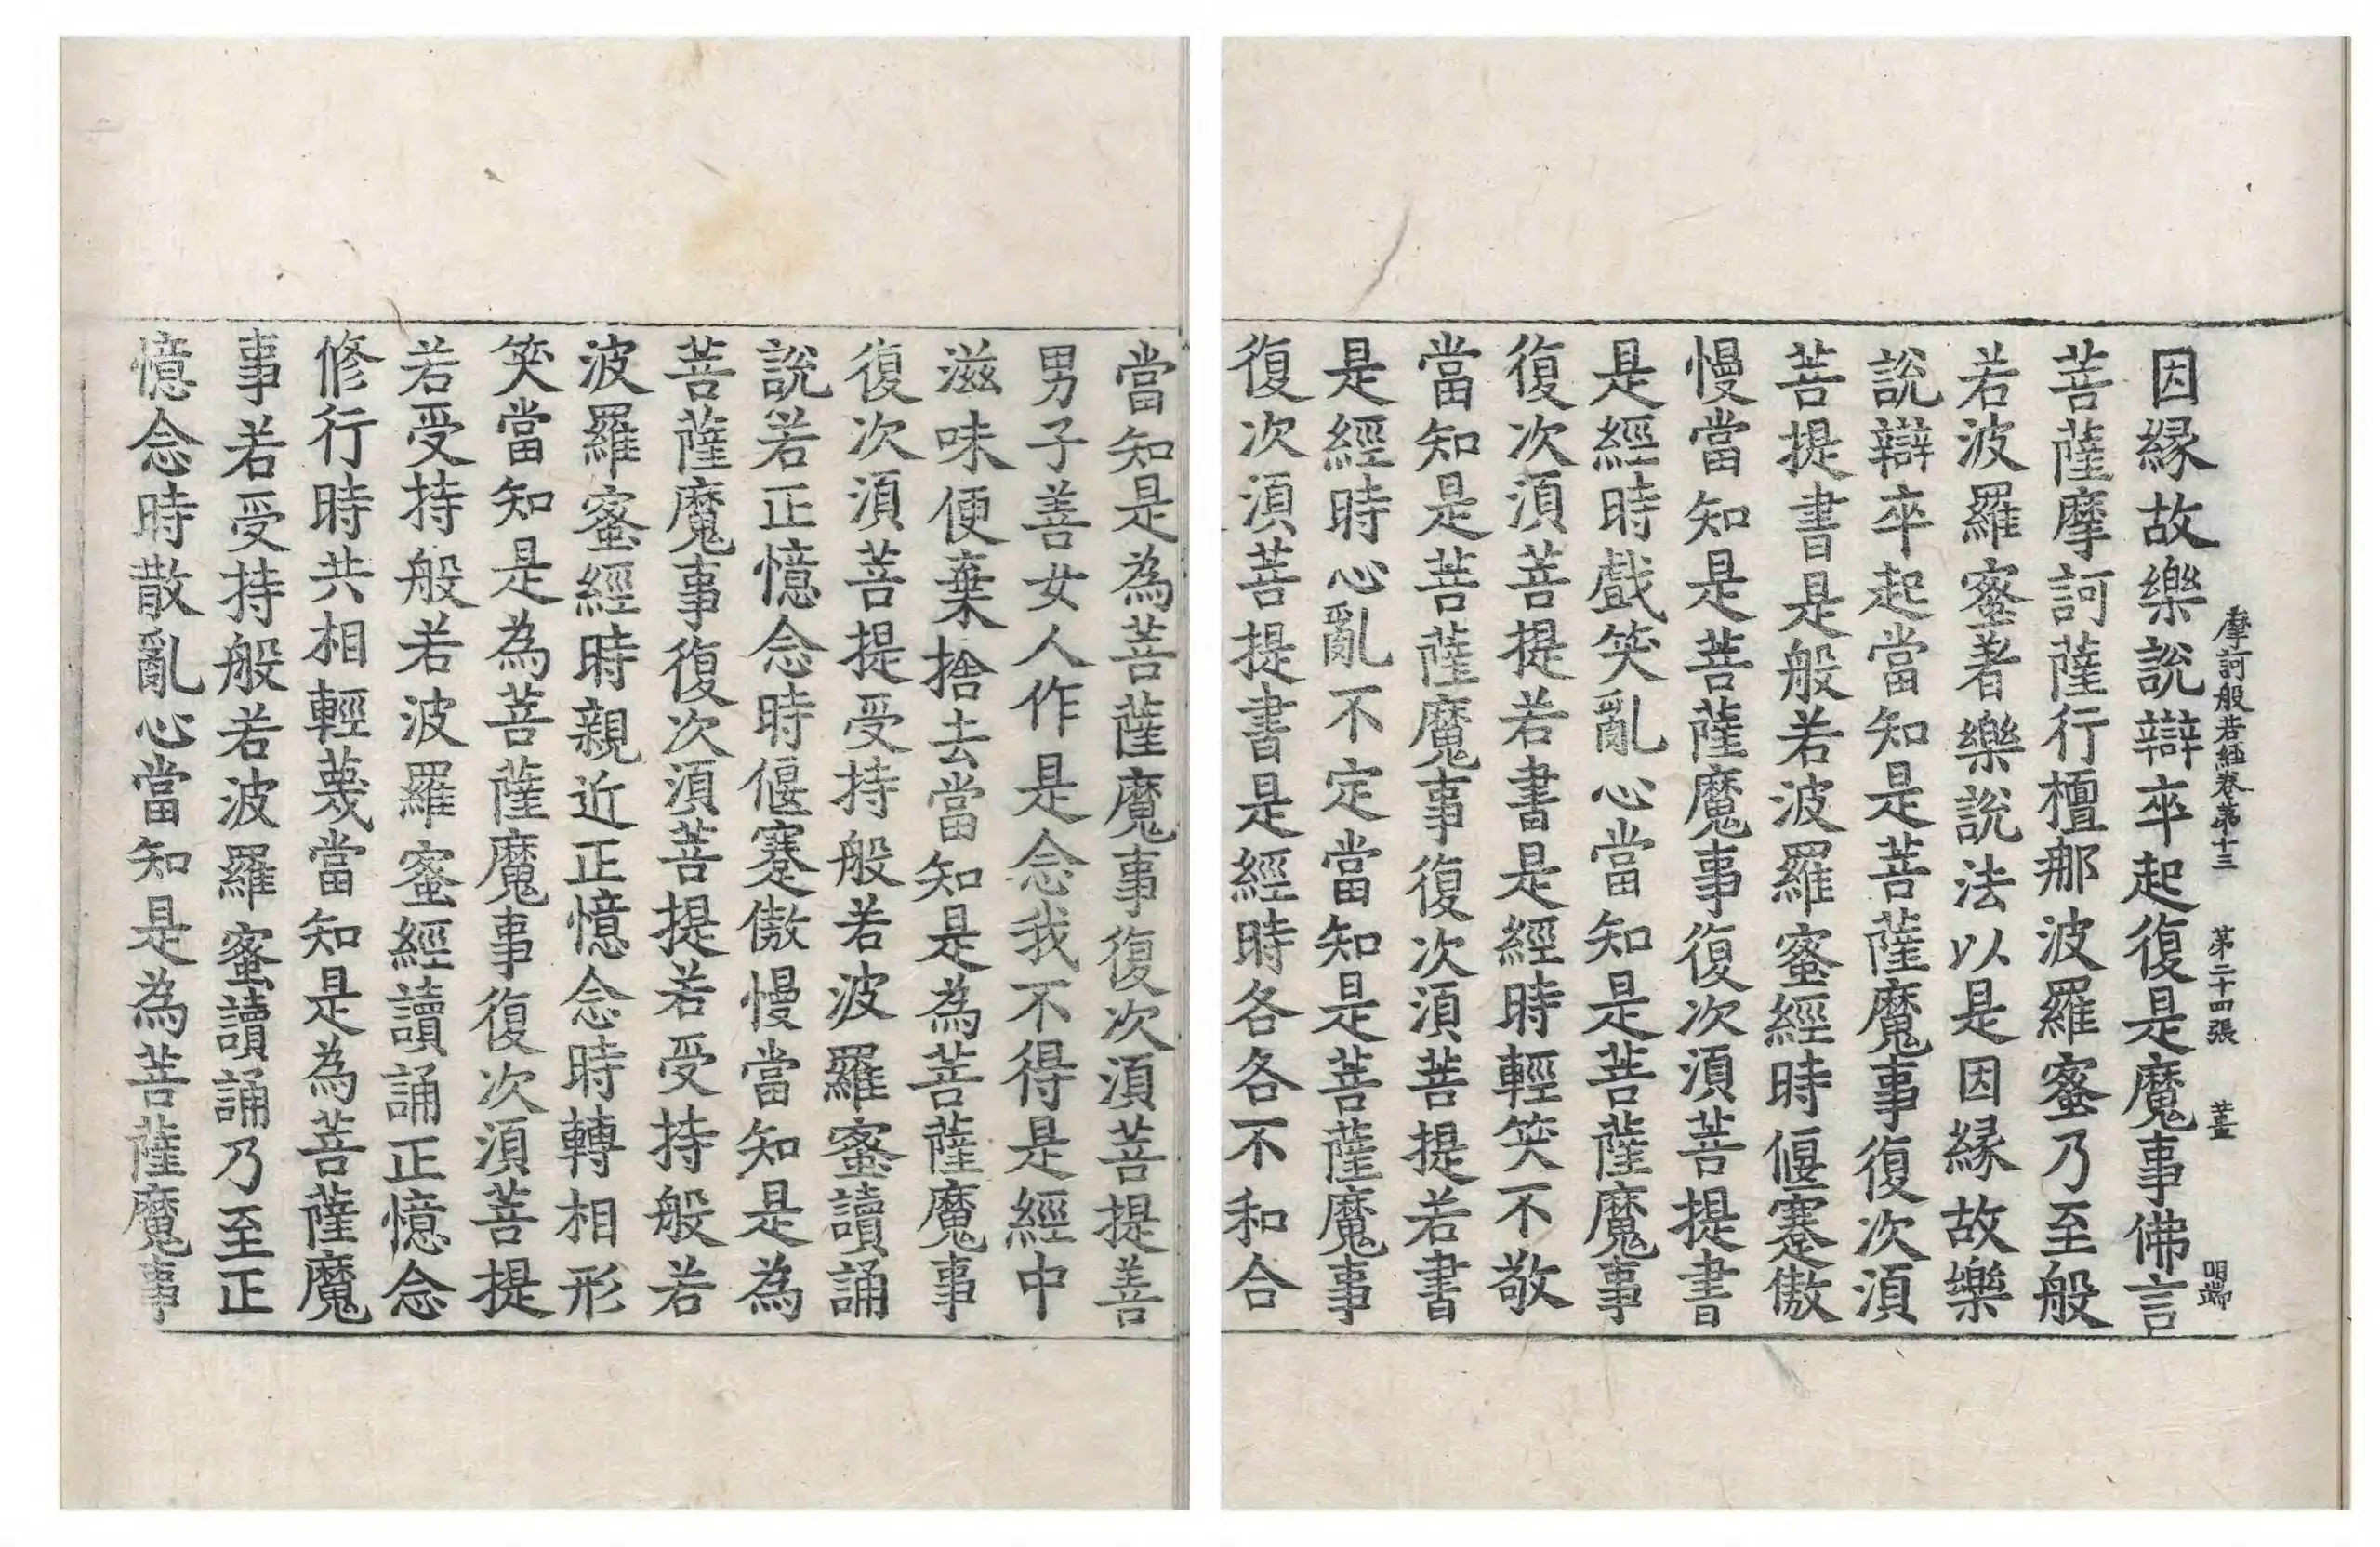 摩訶般若經卷第十三　第二十四張　薑　明端
因緣故樂說辯卒起復是魔事佛言
菩薩摩訶薩行檀那波羅蜜乃至般
若波羅蜜著樂說法以是因緣故樂
說辯卒起當知是菩薩魔事復次須
菩提書是般若波羅蜜經時偃蹇傲
慢當知是菩薩魔事復次須菩提書
是經時戲笑亂心當知是菩薩魔事
復次須菩提若書是經時輕笑不敬
當知是菩薩魔事復次須菩提若書
是經時心亂不定當知是菩薩魔事
復次須菩提書是經時各各不和合
當知是為菩薩魔事復次須菩提善
男子善女人作是念我不得是經中
滋味便棄捨去當知是為菩薩魔事
復次須菩提受持般若波羅蜜讀誦
說若正憶念時偃蹇傲慢當知是為
菩薩魔事復次須菩提若受持般若
波羅蜜經時親近正憶念時轉相形
笑當知是為菩薩魔事復次須菩提
若受持般若波羅蜜經讀誦正憶念
修行時共相輕蔑當知是為菩薩魔
事若受持般若波羅蜜讀誦乃至正
憶念時散亂心當知是為菩薩魔事